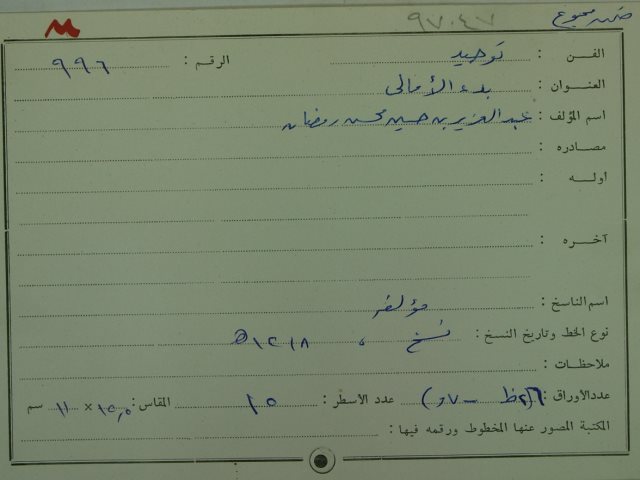 ضمن مجموع ٩٧٠٤٧
الفــن : توحيد الرقم : ٩٩٦
العنــوان : بدء الأمالى
اسم المؤلف : عبد العزيز بن حسين محسن رمضان
مصــادره :
اولــه :
آخــره :
اسم الناسخ : مؤلفه
نوع الخط وتاريخ النسخ : نسخ ، ١٢١٨ هـ
ملاحظــات :
عدد الأوراق : ٦ (٢ظ – ٧و) عدد الأسطر : ١٥ المقاس : ١٥,٥ × ١١ سم
المكتبة المصور عنها المخطوط ورقمه فيها :